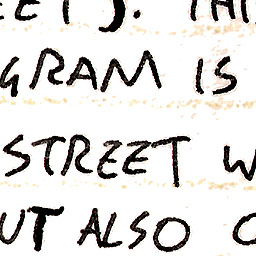 EET). THI
GRAM IS
STREET W
UT ALSO